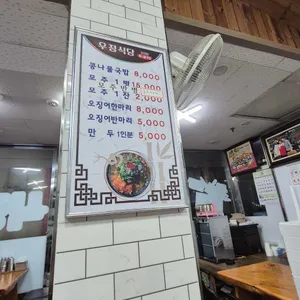 우정식당
콩나물국밥 8,000
모주 1병 15,000
모주반병
모주 1잔 2,000
오징어한마리 8,000
오징어반마리 5,000
만두 1인분 5,000